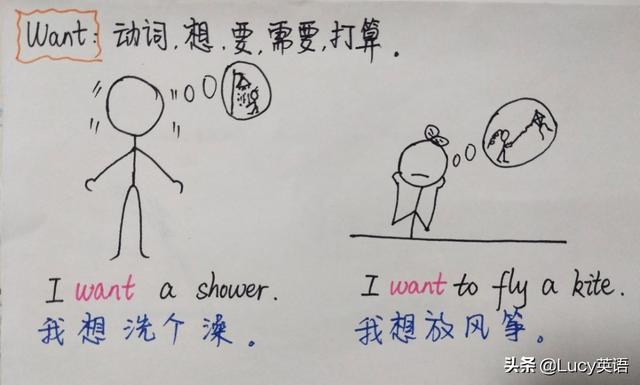 Want: 动词.想.要,需要,打算.
I want a shower.
我想洗个澡。
I want to fly a kite.
我想放风筝。
头条 @Lucy英语